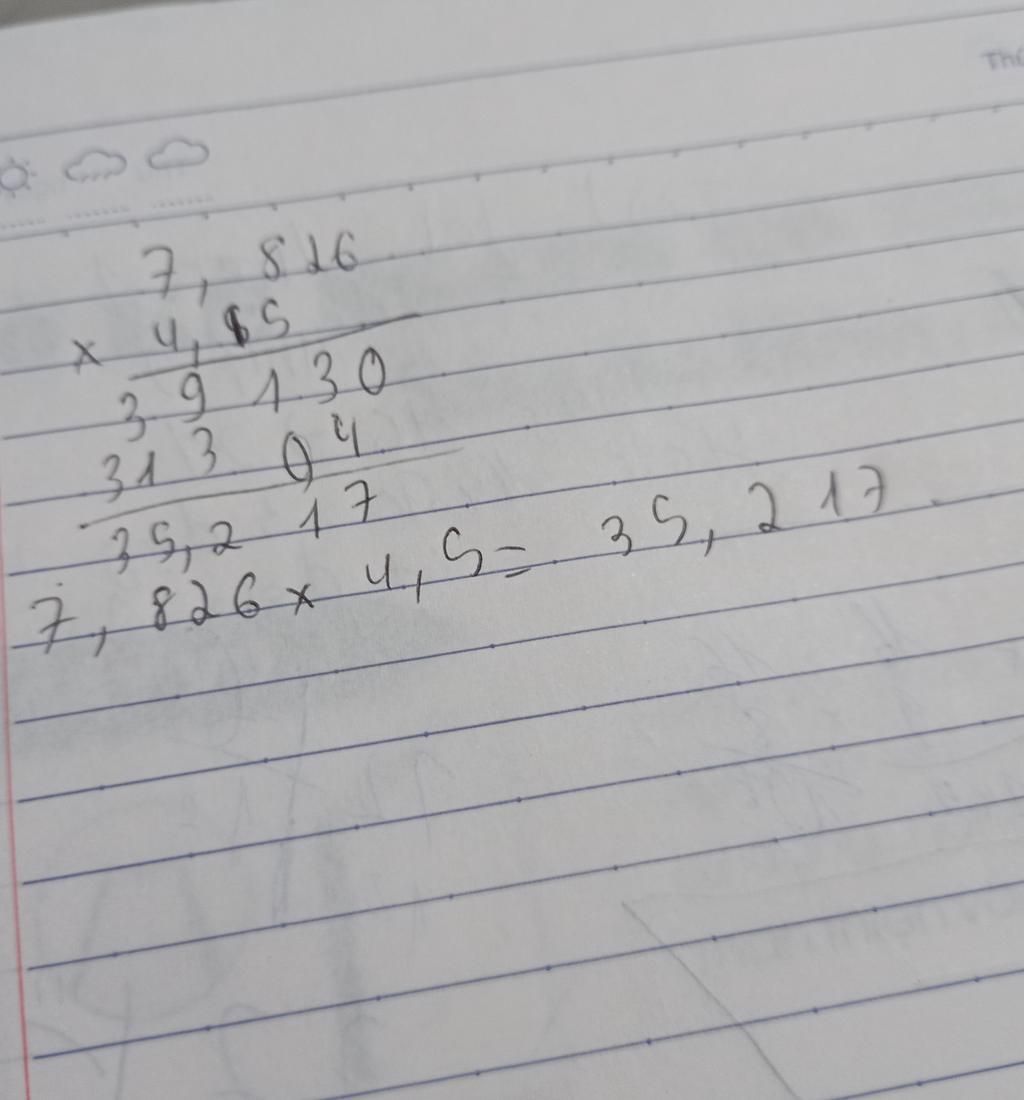 7, 826
x 4, 5
39 130
313 04
35,2 17
7, 826 x 4,5 = 35, 217